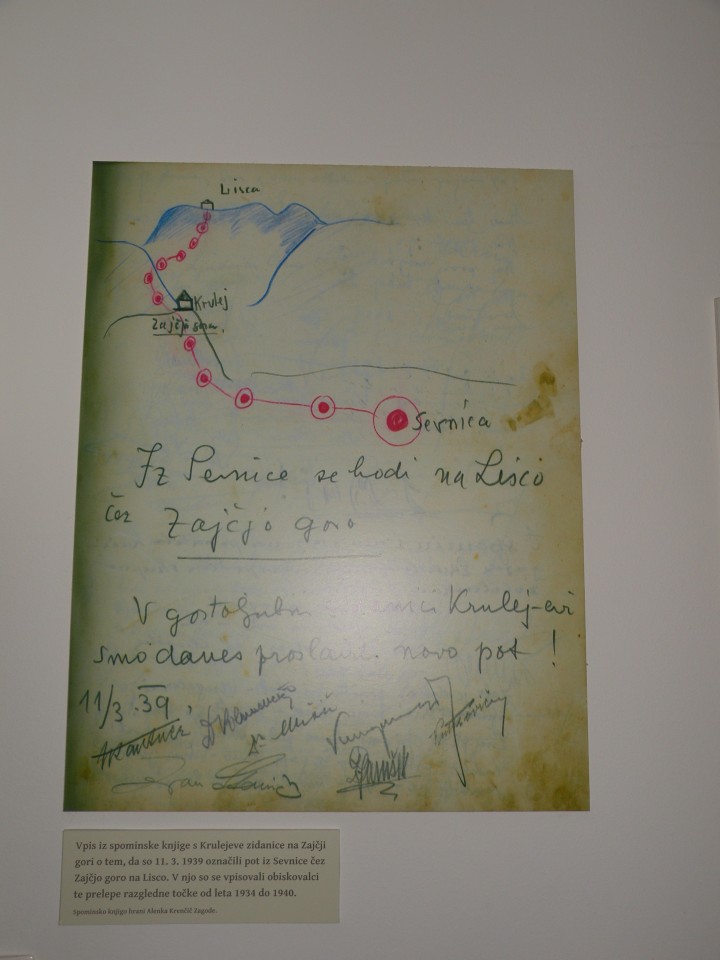 Lisca
Krulej
Zajčja gora.
Sevnica
Iz Sevnice se hodi na Lisco
čez Zajčjo goro
V gostoljubni Krulej-evi
smo danes proslavili novo pot !
11/3. 39,
Vpis iz spominske knjige s Krulejeve zidanice na Zajčji
gori o tem, da so 11. 3. 1939 označili pot iz Sevnice čez
Zajčjo goro na Lisco. V njo so se vpisovali obiskovalci
te prelepe razgledne točke od leta 1934 do 1940.
Spominsko knjigo hrani Alenka Krenčič Zagode.